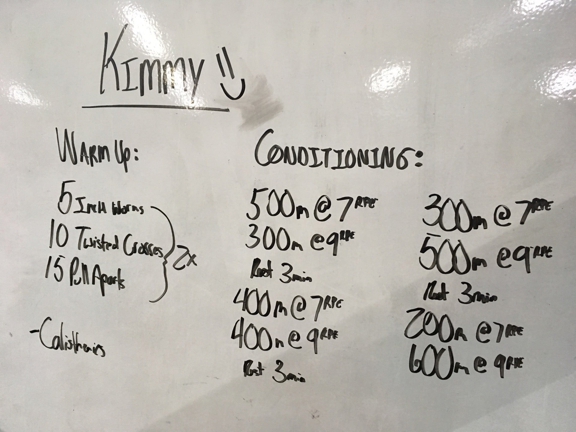 Kimmy =)
Warm Up:
5 Inch Worms
10 Twisted Crosses
15 Pull Aparts
2x
-Calisthenics
Conditioning:
500m @ 7 RPE
300m @ 9 RPE
Rest 3min
400m @ 7 RPE
400m @ 9 RPE
Rest 3min
300m @ 7 RPE
500m @ 9 RPE
Rest 3min
200m @ 7 RPE
600m @ 9 RPE